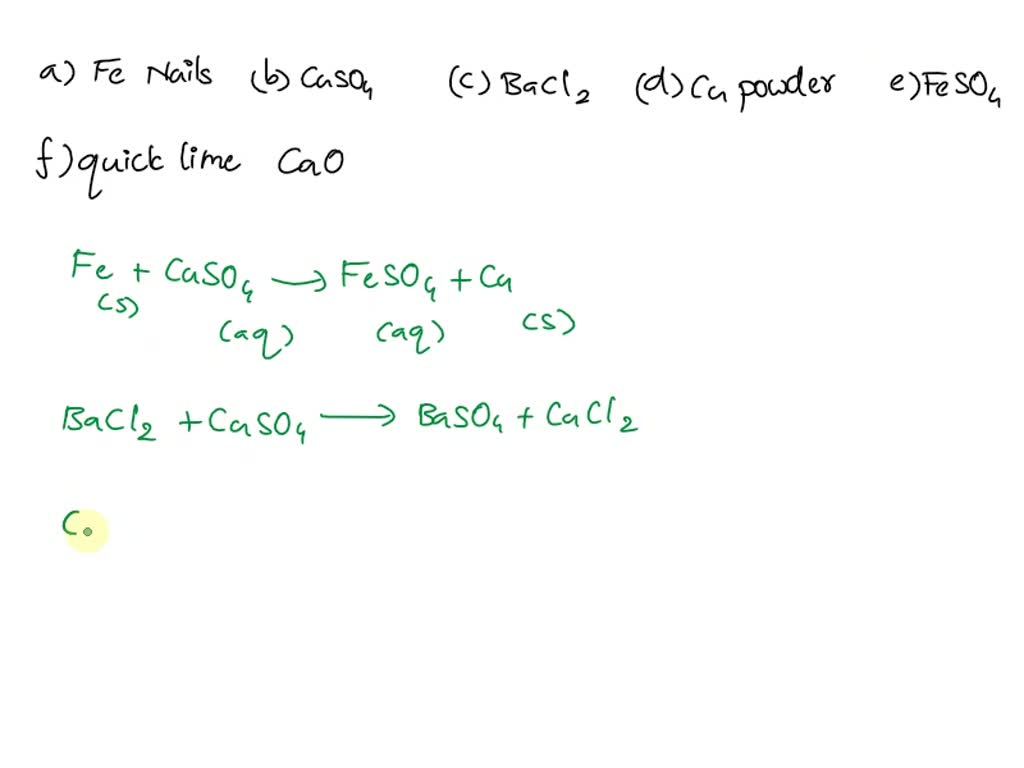 a) Fe Nails (b) CuSO4 (c) BaCl2 (d) Cu powder e) FeSO4
f) quick lime CaO
Fe + CuSO4 → FeSO4 + Cu
(s) (aq) (aq) (s)
BaCl2 + CuSO4 → BaSO4 + CuCl2
C